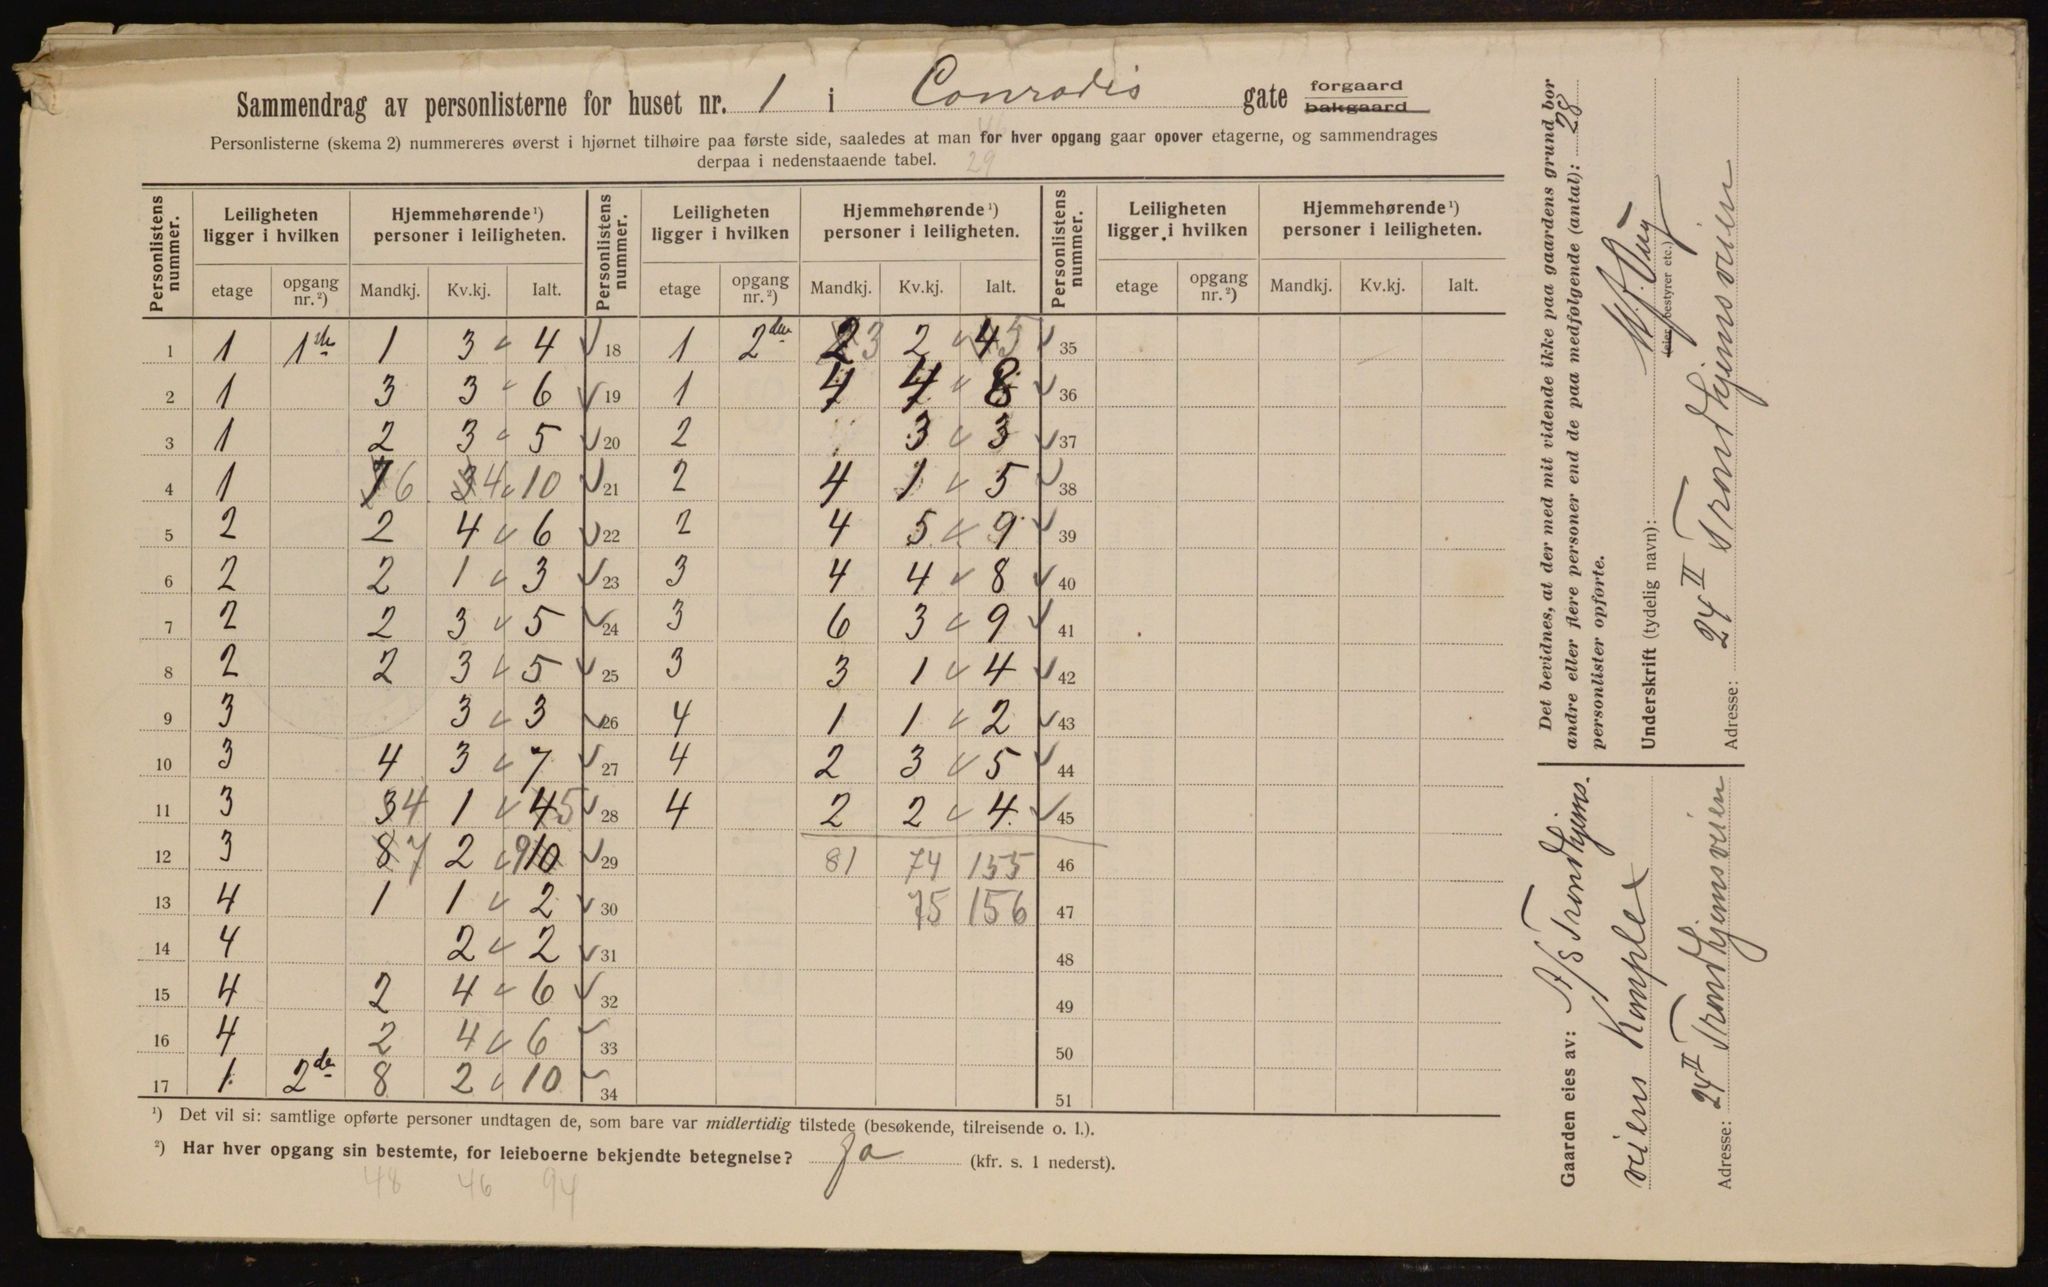 Sammendrag av personlisterne for huset nr. 1 i Conradis gate forgaard
bakgaard
Personlisterne (skema 2) nummereres øverst i hjørnet tilhøire paa første side, saaledes at man for hver opgang gaar opover etagerne, og sammendrages
derpaa i nedenstaaende tabel. 29
Personlistens nummer. Leiligheten ligger i hvilken Hjemmehørende ¹) personer i leiligheten. Personlistens nummer. Leiligheten ligger i hvilken Hjemmehørende ¹) personer i leiligheten. Personlistens nummer. Leiligheten ligger i hvilken Hjemmehørende ¹) personer i leiligheten.
etage opgang nr. ²) Mandkj. Kv.kj. Ialt. etage opgang nr. ²) Mandkj. Kv.kj. Ialt. etage opgang nr. ²) Mandkj. Kv.kj. Ialt.
1 1 1ste 1 3 4 18 1 2den 2 3 2 4 5 35
2 1 3 3 6 19 1 4 4 8 36
3 1 2 3 5 20 2 3 3 37
4 1 7 6 3 4 10 21 2 4 1 5 38
5 2 2 4 6 22 2 4 5 9 39
6 2 2 1 3 23 3 4 4 8 40
7 2 2 3 5 24 3 6 3 9 41
8 2 2 3 5 25 3 3 1 4 42
9 3 3 3 26 4 1 1 2 43
10 3 4 3 7 27 4 2 3 5 44
11 3 3 4 1 4 5 28 4 2 2 4 45
12 3 8 7 2 9 10 29 81 74 155 46
13 4 1 1 2 30 75 156 47
14 4 2 2 31 48
15 4 2 4 6 32 49
16 4 2 4 6 33 50
17 1 2de 8 2 10 34 51
¹) Det vil si: samtlige opførte personer undtagen de, som bare var midlertidig tilstede (besøkende, tilreisende o. l.).
²) Har hver opgang sin bestemte, for leieboerne bekjendte betegnelse? Ja (kfr. s. 1 nederst).
48 46 94
Det bevidnes, at der med mit vidende ikke paa gaardens grund bor
andre eller flere personer end de paa medfølgende (antal): 28
personlister opførte.
Underskrift (tydelig navn):
(eier, bestyrer etc.)
Adresse: 24 II Trondhjemsveien
Gaarden eies av: A/S Trondhjems-
veiens Komplex
Adresse: 24 II Trondhjemsveien